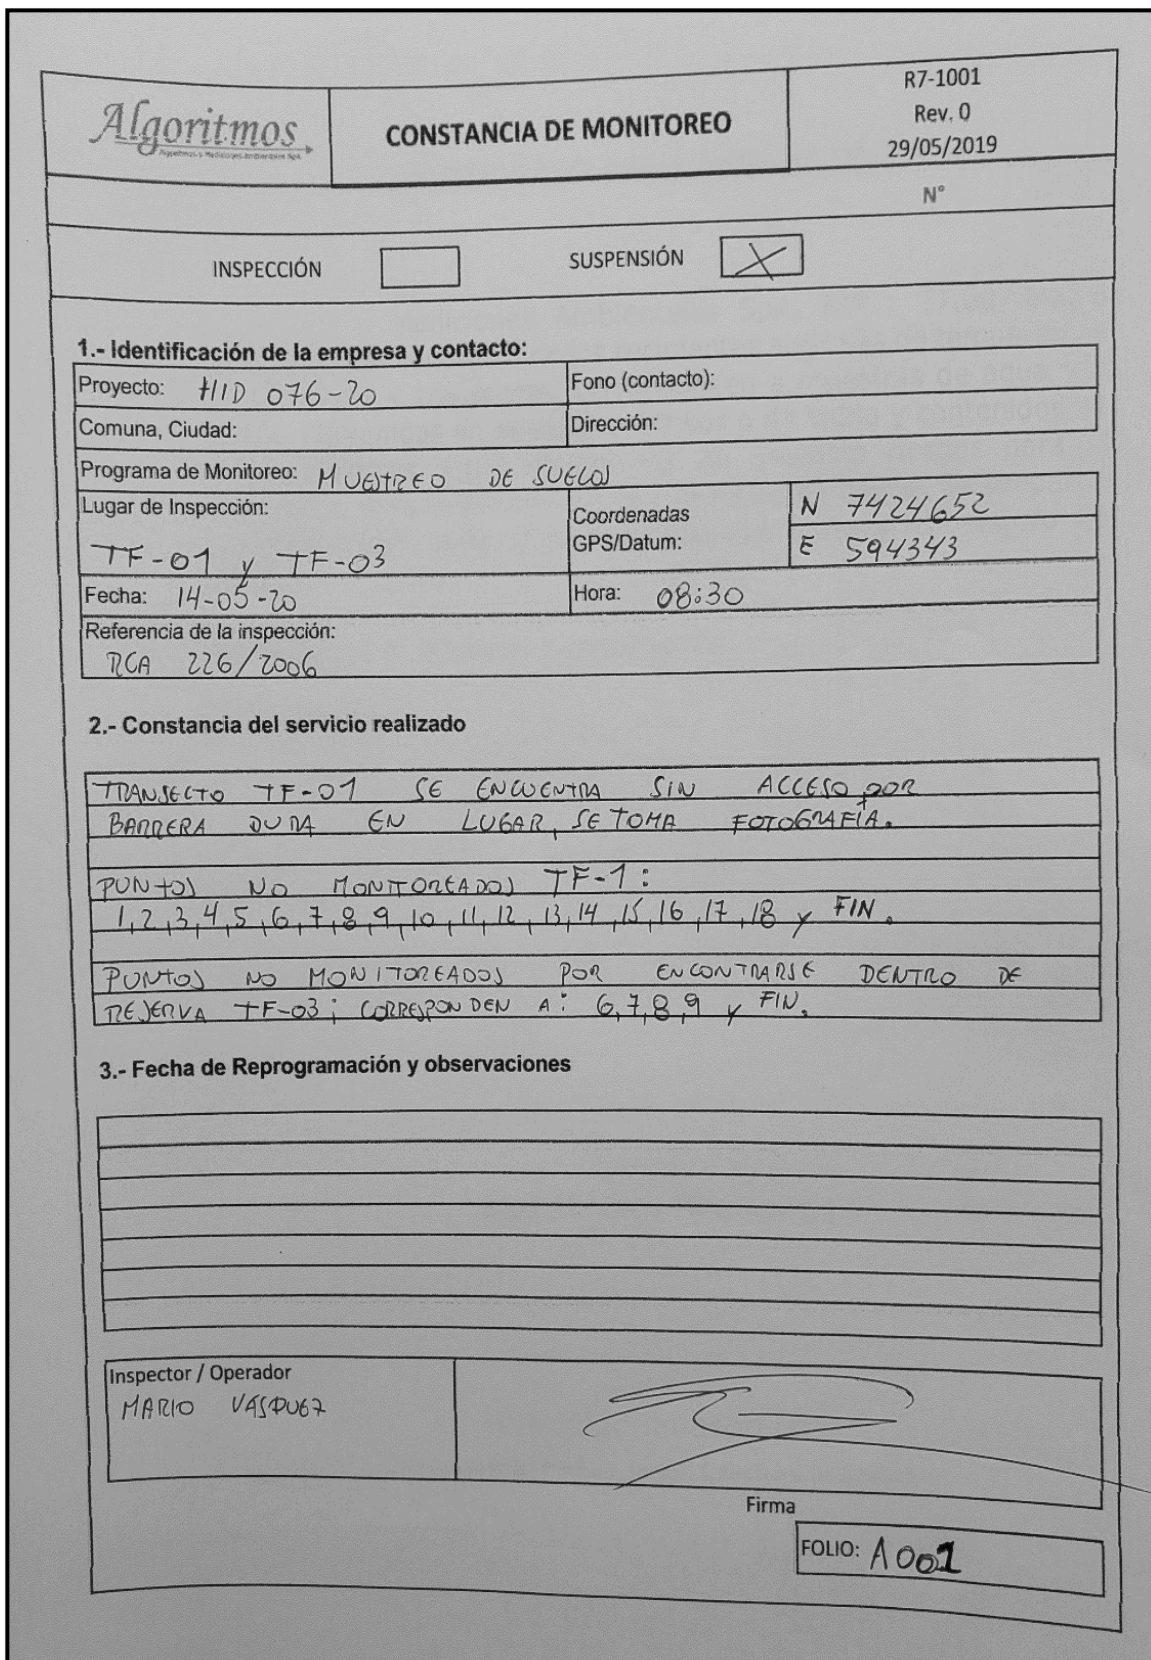 Algoritmos
Algoritmos y Mediciones Ambientales SpA
CONSTANCIA DE MONITOREO
R7-1001
Rev. 0
29/05/2019
N°
INSPECCIÓN
SUSPENSIÓN X
1.- Identificación de la empresa y contacto:
Proyecto: HID 076-20
Fono (contacto):
Comuna, Ciudad:
Dirección:
Programa de Monitoreo: MUESTREO DE SUELOS
Lugar de Inspección:
TF-01 y TF-03
Coordenadas
GPS/Datum:
N 7424652
E 594343
Fecha: 14-05-20
Hora: 08:30
Referencia de la inspección:
RCA 226/2006
2.- Constancia del servicio realizado
TRANSECTO TF-01 SE ENCUENTRA SIN ACCESO POR
BARRERA DURA EN LUGAR, SE TOMA FOTOGRAFÍA.
PUNTOS NO MONITOREADOS TF-1:
1,2,3,4,5,6,7,8,9,10,11,12,13,14,15,16,17,18 y FIN.
PUNTOS NO MONITOREADOS POR ENCONTRARSE DENTRO DE
RESERVA TF-03; CORRESPONDEN A: 6,7,8,9 y FIN.
3.- Fecha de Reprogramación y observaciones
Inspector / Operador
MARIO VÁSQUEZ
Firma
FOLIO: A001